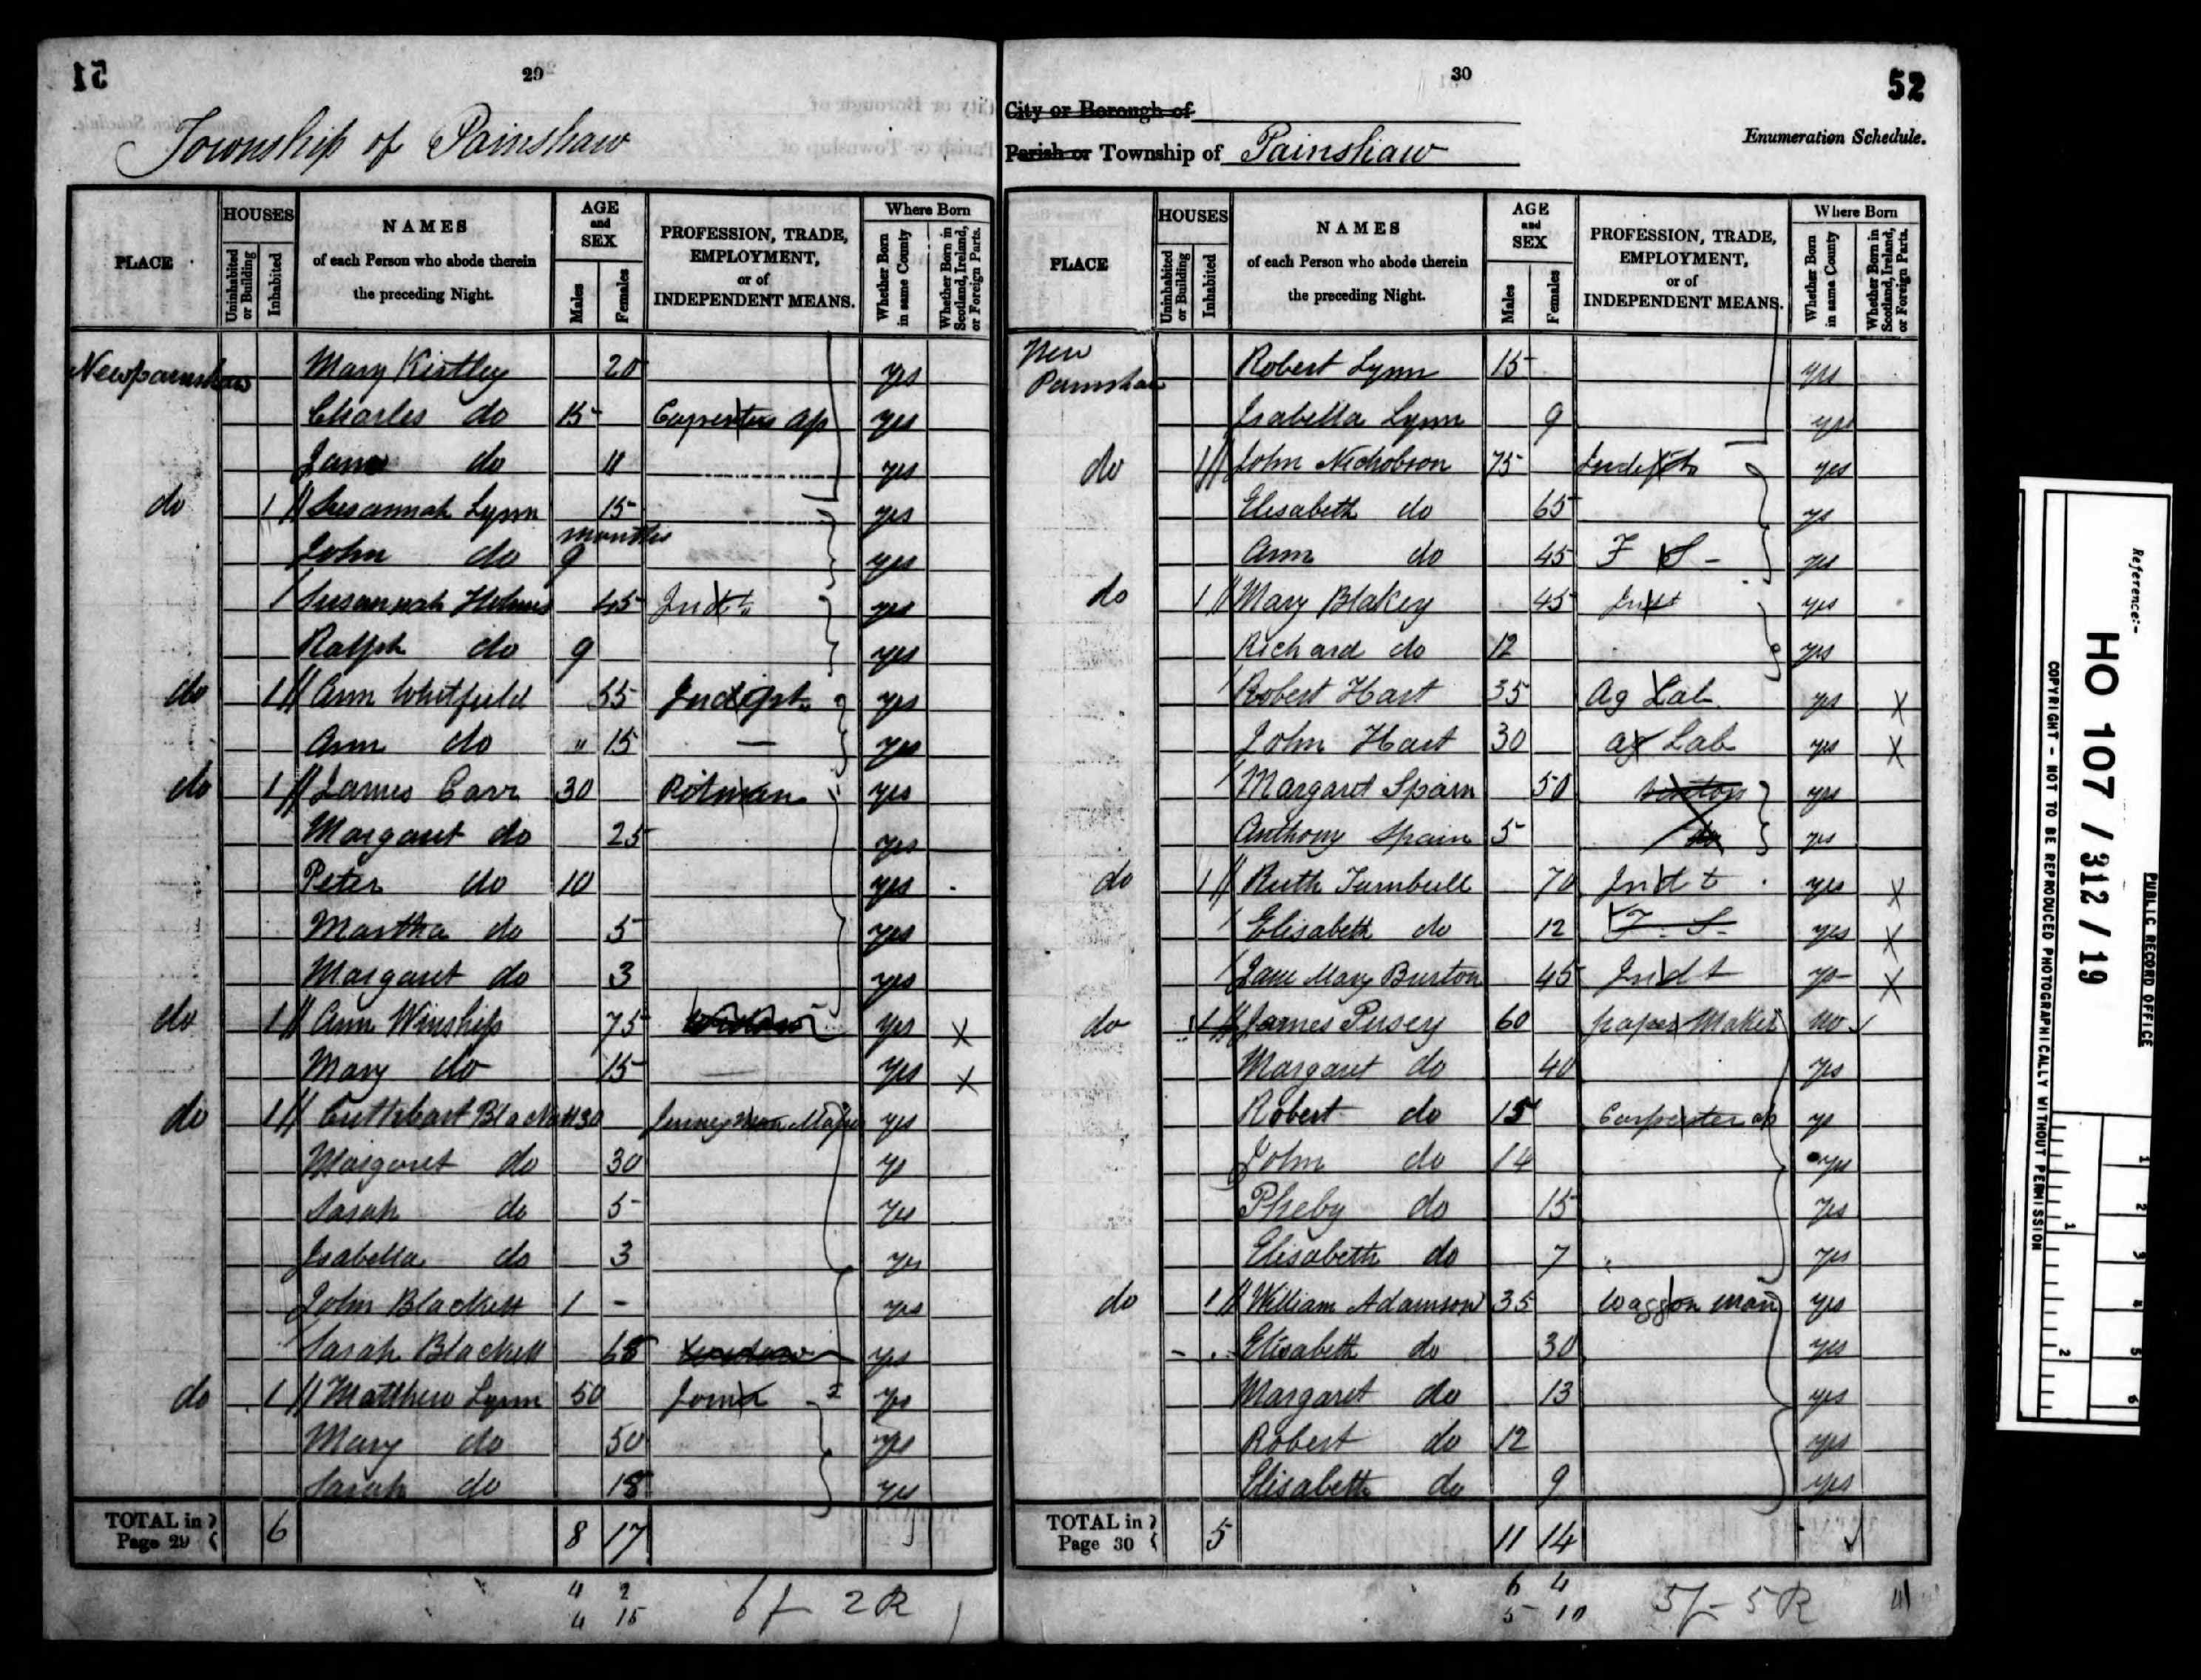 51
29
Township of Painshaw
PLACE
HOUSES
Uninhabited or Building
Inhabited
NAMES
of each Person who abode therein
the preceding Night.
AGE
and
SEX
Males
Females
PROFESSION, TRADE,
EMPLOYMENT,
or of
INDEPENDENT MEANS.
Where Born
Whether Born in same County
Whether Born in Scotland, Ireland, or Foreign Parts.
Newpainshaw Mary Kirtley 20 yes
Charles do 15 Carpenters ap yes
Jane do 11 yes
do 1 // Susannah Lynn 15 yes
John do 9 months yes
/ Susannah Holmes 45 Indt yes
Ralph do 9 yes
do 1 // Ann Whitfield 55 Indept yes
Ann do " 15 — yes
do 1 // James Carr 30 Pitman yes
Margaret do 25 yes
Peter do 10 yes
Martha do 5 yes
Margaret do 3 yes
do 1 // Ann Winship 75 yes X
Mary do 15 yes X
do 1 // Cuthbart Blackett 30 yes
Margaret do 30 ys
Sarah do 5 yes
Isabella do 3 yes
John Blackett 1 - yes
Sarah Blackett 65 yes
do 1 // Matthew Lynn 50 yes
Mary do 50 yes
Sarah do 15 yes
TOTAL in Page 29 6 8 17
4 2
4 15
6f 2R
30
52
City or Borough of
Parish or Township of Painshaw
Enumeration Schedule.
PLACE
HOUSES
Uninhabited or Building
Inhabited
NAMES
of each Person who abode therein
the preceding Night.
AGE
and
SEX
Males
Females
PROFESSION, TRADE,
EMPLOYMENT,
or of
INDEPENDENT MEANS.
Where Born
Whether Born in same County
Whether Born in Scotland, Ireland, or Foreign Parts.
New Painshaw Robert Lynn 15 yes
Isabella Lynn 9 yes
do 1 // John Nicholson 75 Indept yes
Elisabeth do 65 ys
Ann do 45 F S - yes
do 1 // Mary Blakey 45 Indt yes
Richard do 12 yes
/ Robert Hart 35 Ag Lab yes X
John Hart 30 ag Lab yes X
/ Margaret Spain 50 yes
Anthony Spain 5 do yes
do 1 // Ruth Turnbull 70 Indt yes X
/ Elisabeth do 12 F. S. yes X
/ Jane Mary Burton 45 Indt ys X
do 1 // James Pusey 60 paper Maker no
Margaret do 40 yes
Robert do 15 Carpenter ap ys
John do 14 yes
Pheby do 15 yes
Elisabeth do 7 yes
do 1 // William Adamson 35 Waggon man yes
Elisabeth do 30 yes
Margaret do 13 yes
Robert do 12 yes
Elisabeth do 9 yes
TOTAL in Page 30 5 11 14
6 4
5 10
5f - 5R
Reference:-
HO 107 / 312 / 19
PUBLIC RECORD OFFICE
COPYRIGHT - NOT TO BE REPRODUCED PHOTOGRAPHICALLY WITHOUT PERMISSION
1 2 3 4 5 6
1 2